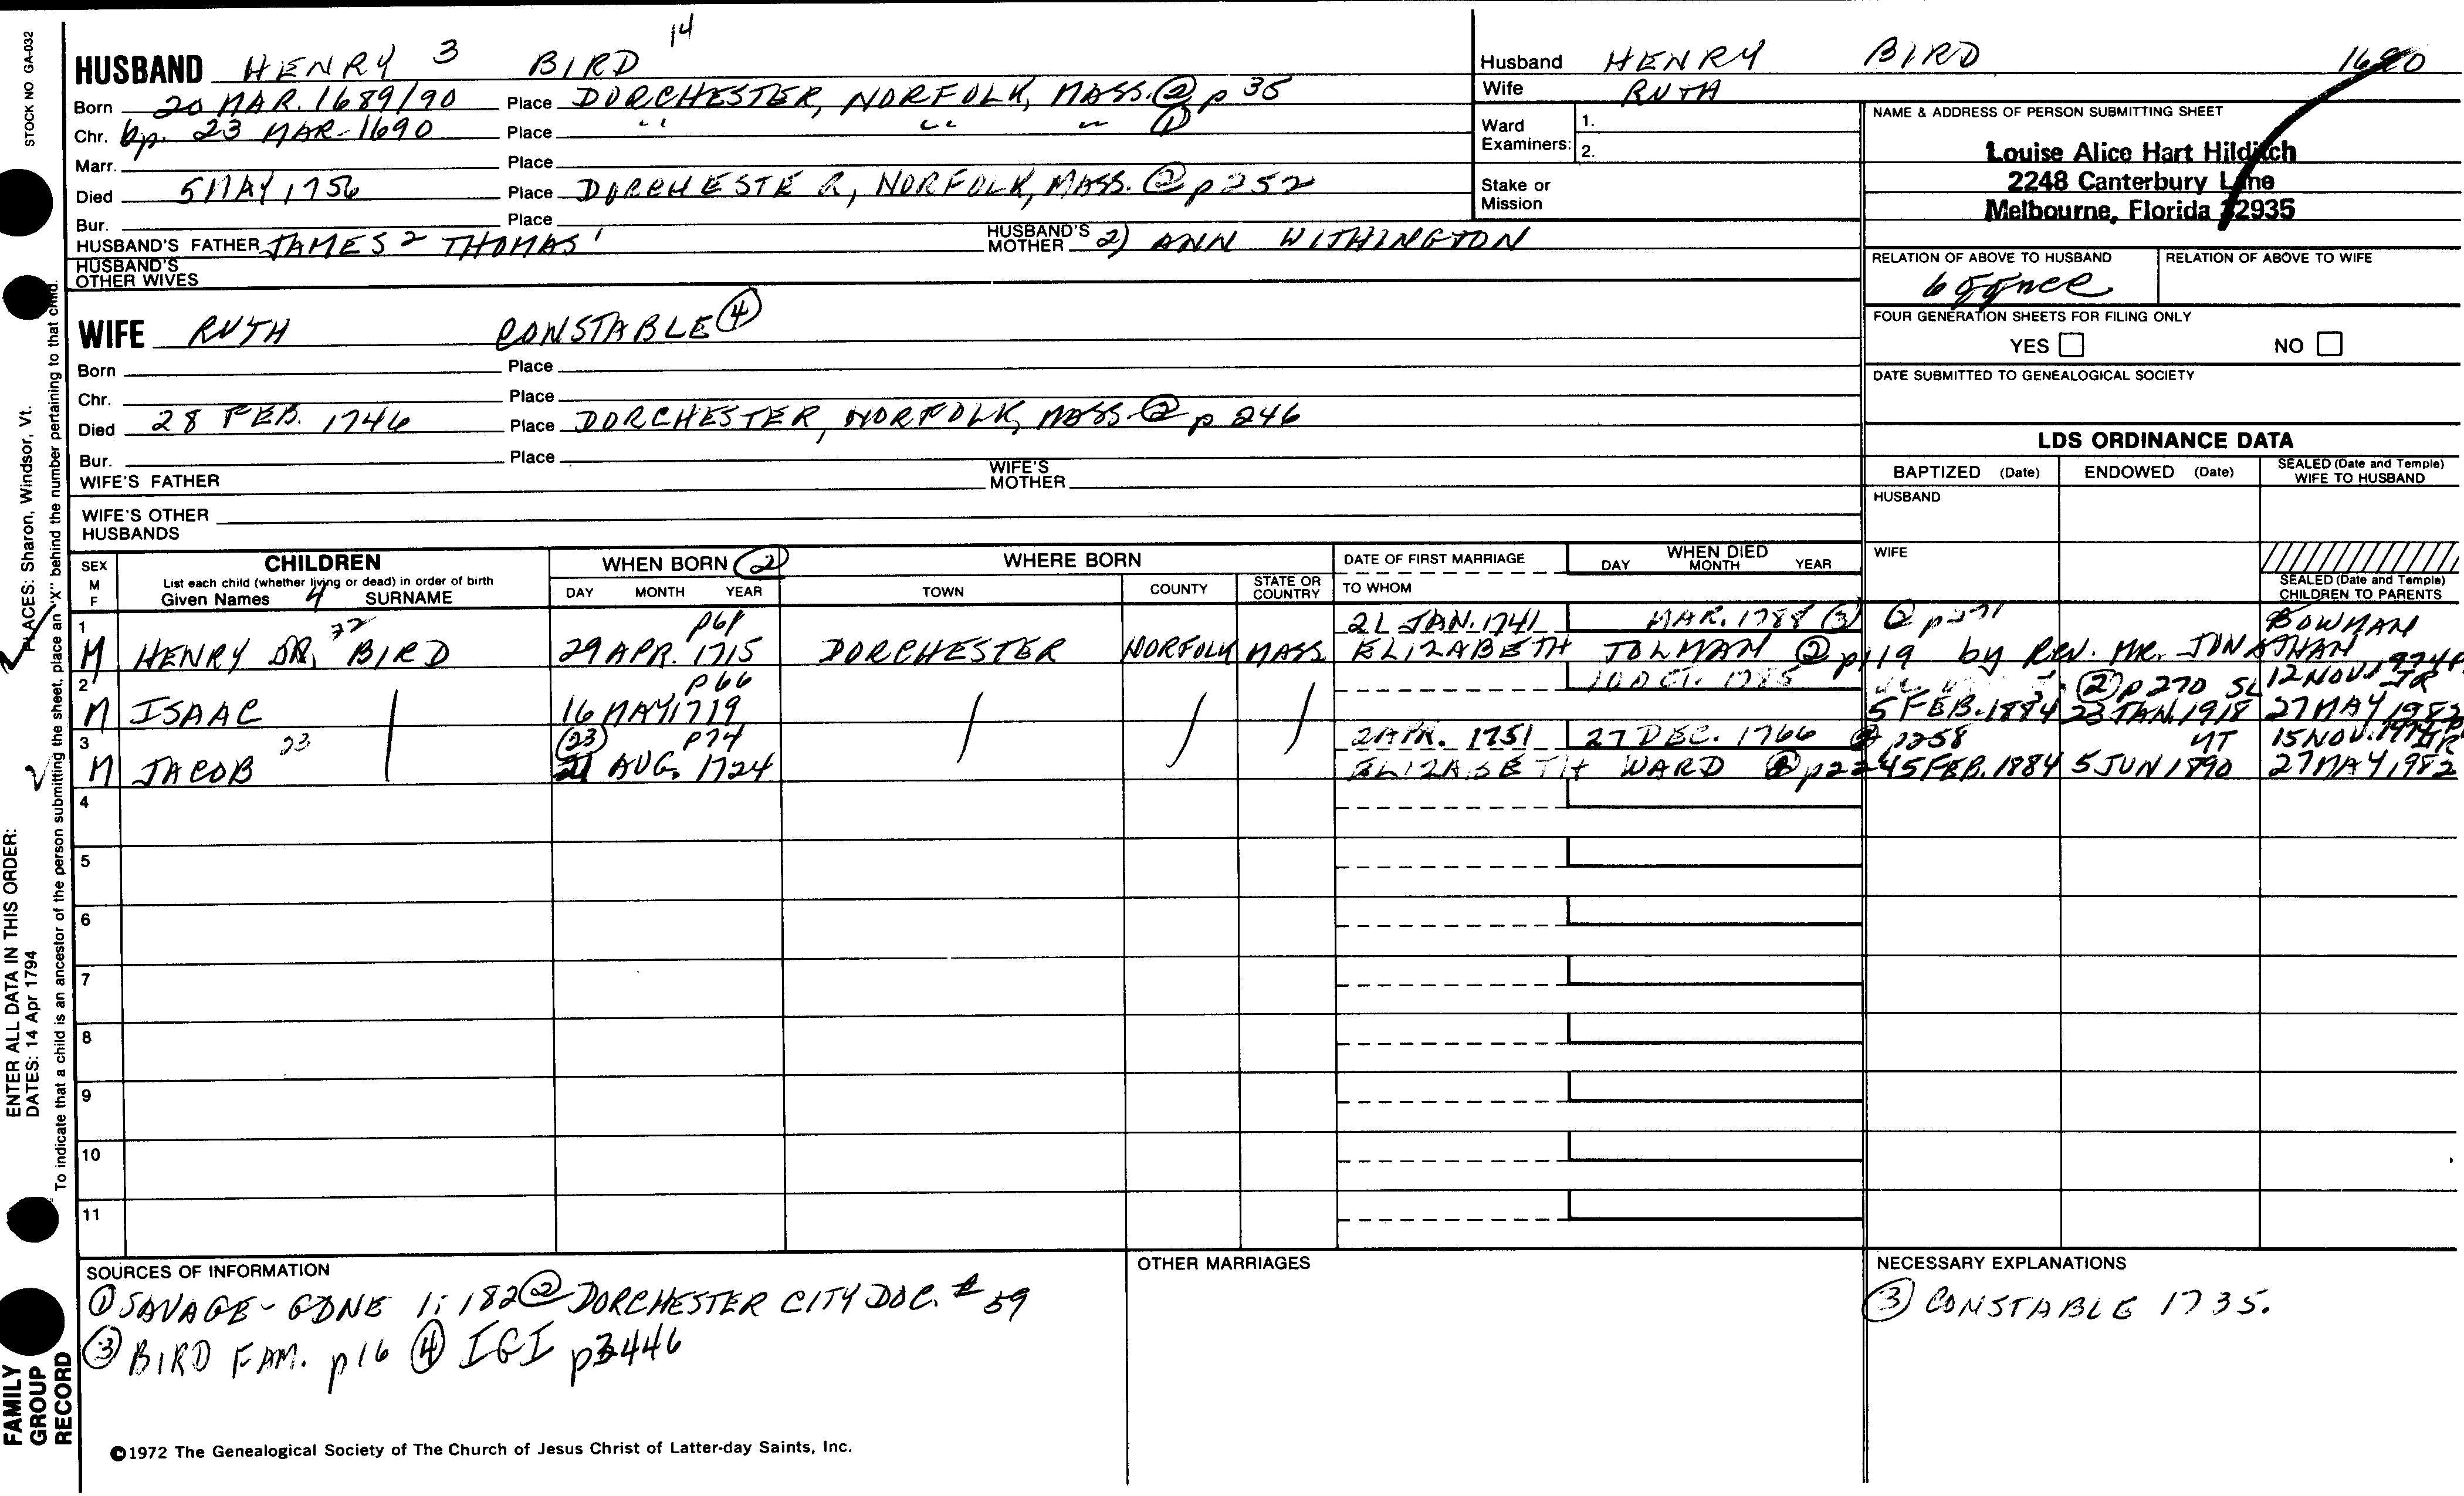 STOCK NO GA-032
14
HUSBAND HENRY 3 BIRD
Born 20 MAR. 1689/90 Place DORCHESTER, NORFOLK, MASS. ② p 35
Chr. bp. 23 MAR. 1690 Place " " " ①
Marr. Place
Died 5 MAY 1756 Place DORCHESTER, NORFOLK, MASS. ② p 252
Bur. Place
HUSBAND'S FATHER JAMES 2 THOMAS 1 HUSBAND'S MOTHER 2) ANN WITHINGTON
HUSBAND'S OTHER WIVES
WIFE RUTH CONSTABLE ④
Born Place
Chr. Place
Died 28 FEB. 1746 Place DORCHESTER, NORFOLK, MASS. ② p 246
Bur. Place
WIFE'S FATHER WIFE'S MOTHER
WIFE'S OTHER HUSBANDS
Husband HENRY BIRD 1690
Wife RUTH
Ward Examiners: 1.
2.
Stake or Mission
NAME & ADDRESS OF PERSON SUBMITTING SHEET
Louise Alice Hart Hilditch
2248 Canterbury Lane
Melbourne, Florida 32935
RELATION OF ABOVE TO HUSBAND RELATION OF ABOVE TO WIFE
6ggnce
FOUR GENERATION SHEETS FOR FILING ONLY
YES NO
DATE SUBMITTED TO GENEALOGICAL SOCIETY
LDS ORDINANCE DATA
BAPTIZED (Date) ENDOWED (Date) SEALED (Date and Temple) WIFE TO HUSBAND
HUSBAND
WIFE
SEALED (Date and Temple) CHILDREN TO PARENTS
SEX M F CHILDREN WHEN BORN ② WHERE BORN DATE OF FIRST MARRIAGE WHEN DIED
List each child (whether living or dead) in order of birth DAY MONTH YEAR
Given Names 4 SURNAME DAY MONTH YEAR TOWN COUNTY STATE OR COUNTRY TO WHOM
1 22 p61 21 JAN. 1741 MAR. 1788 ③ ② p271 BOWMAN
M HENRY JR. BIRD 29 APR. 1715 DORCHESTER NORFOLK MASS ELIZABETH TOLMAN ② p119 by REV. MR. JONATHAN
2 p66 10 OCT. 1785 ② p270 SL 12 NOV. 1974 JR
M ISAAC 16 MAY 1719 5 FEB. 1884 23 JAN. 1918 27 MAY 1982
3 23 (23) p74 2 APR. 1751 27 DEC. 1766 ② p258 15 NOV. 1974 JR
M JACOB 21 AUG. 1724 ELIZABETH WARD ② p224 5 FEB. 1884 5 JUN 1890 27 MAY 1982
4
5
6
7
8
9
10
11
SOURCES OF INFORMATION
① SAVAGE - GDNE 1:182 ② DORCHESTER CITY DOC. # 59
③ BIRD FAM. p16 ④ IGI p3446
OTHER MARRIAGES
NECESSARY EXPLANATIONS
③ CONSTABLE 1735.
©1972 The Genealogical Society of The Church of Jesus Christ of Latter-day Saints, Inc.
FAMILY GROUP RECORD
ENTER ALL DATA IN THIS ORDER:
DATES: 14 Apr 1794 PLACES: Sharon, Windsor, Vt.
To indicate that a child is an ancestor of the person submitting the sheet, place an "X" behind the number pertaining to that child.